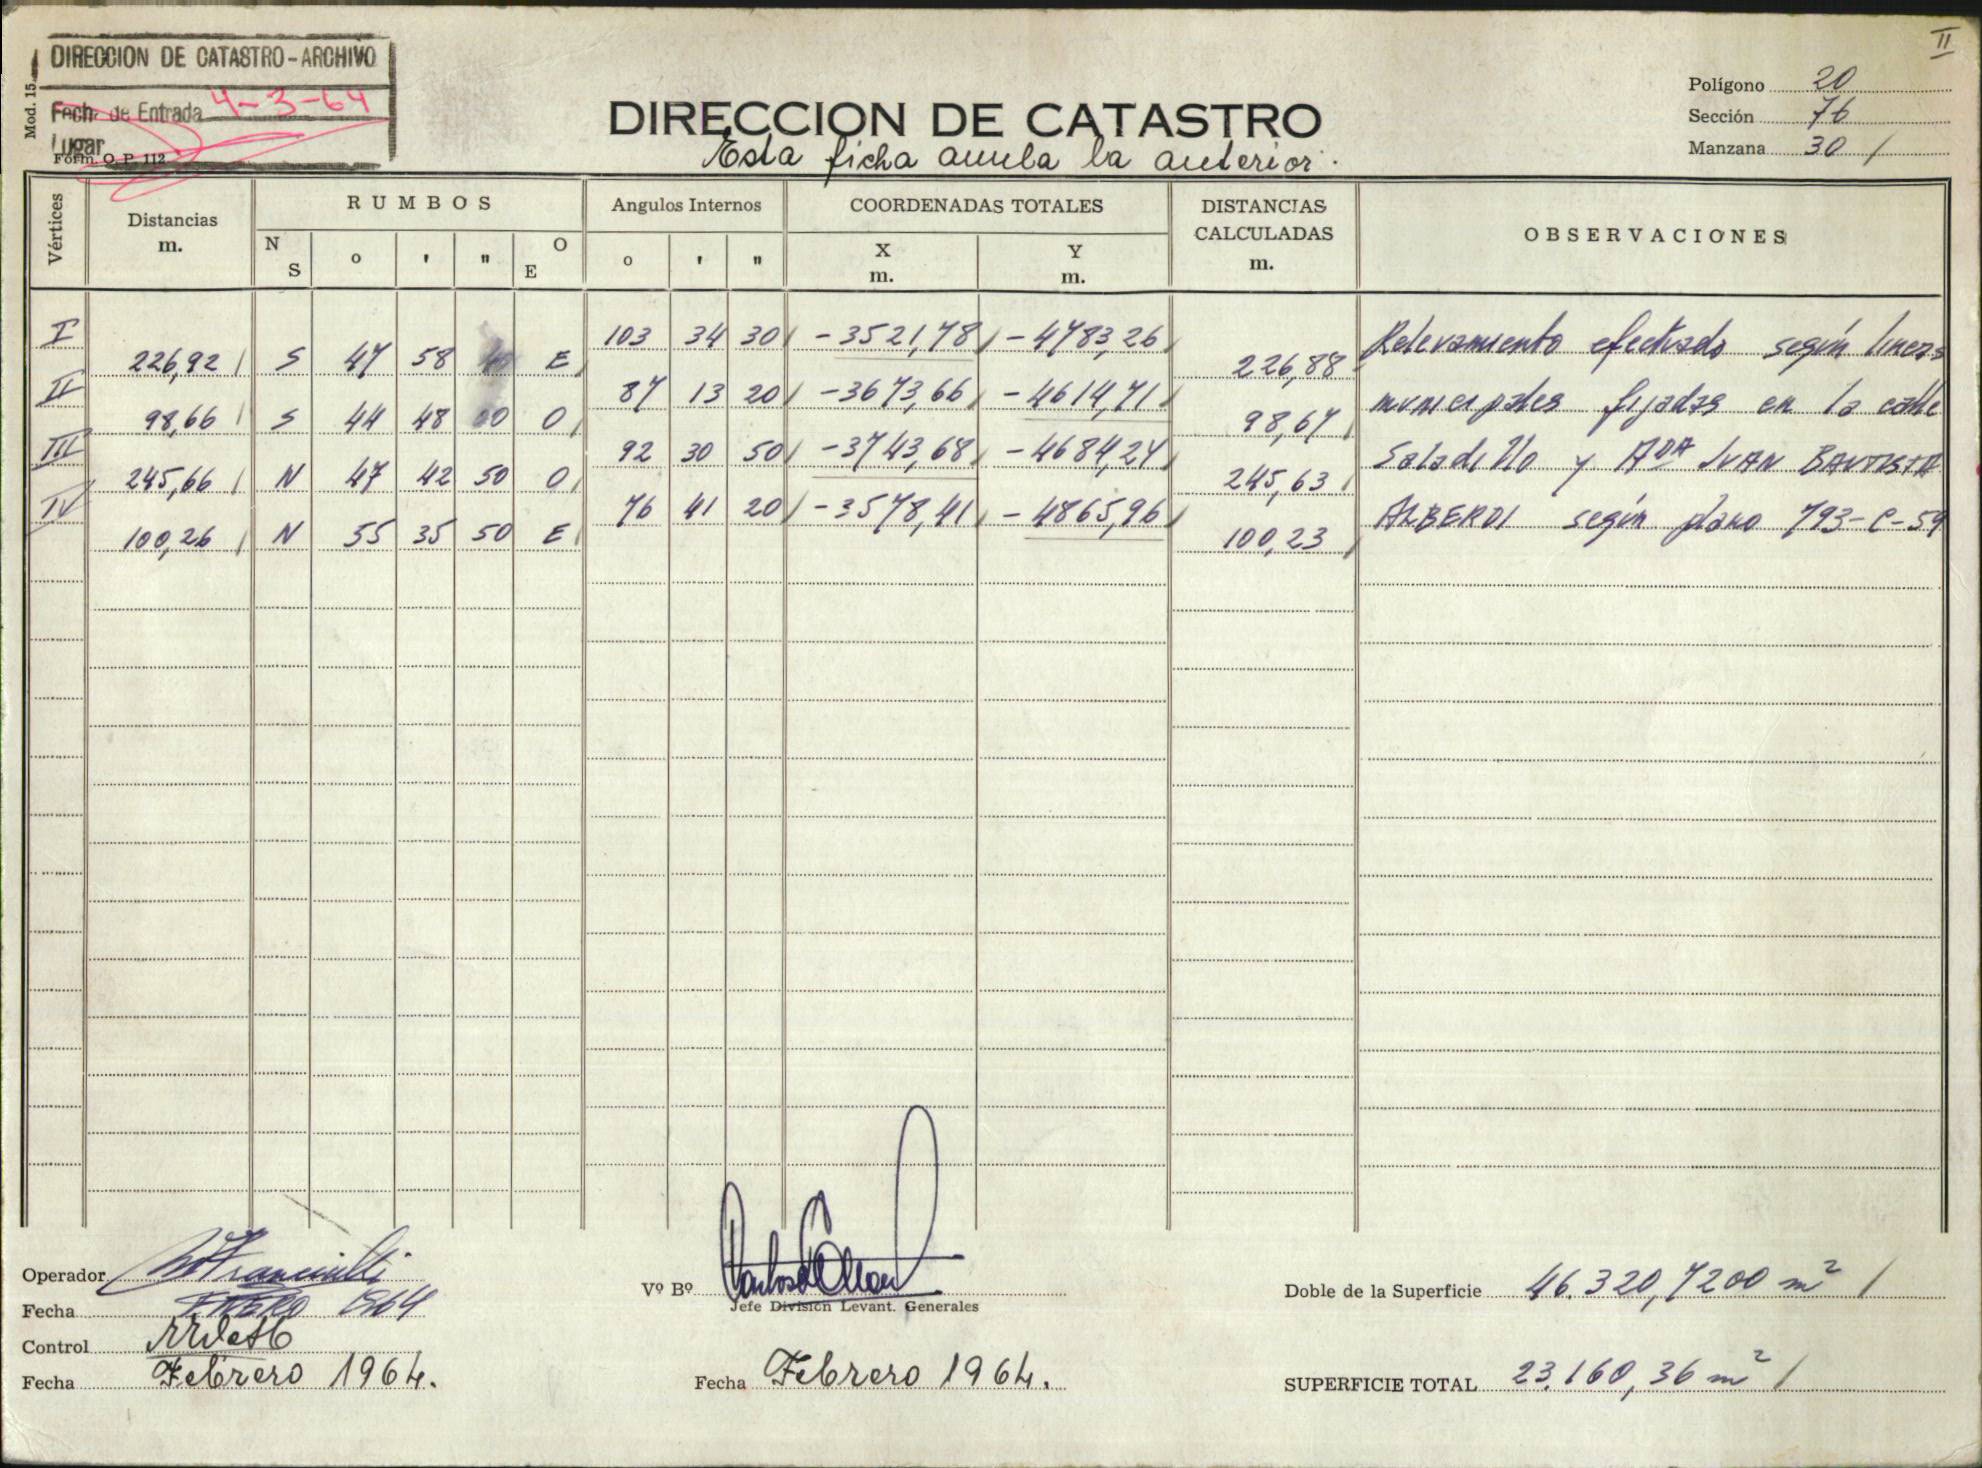 II
DIRECCION DE CATASTRO-ARCHIVO
Mod. 15
Fech. de Entrada 4-3-64
Lugar
Form. O. P. 112
DIRECCION DE CATASTRO
Esta ficha anula la anterior.
Polígono 20
Sección 76
Manzana 30 /
Vértices Distancias m. RUMBOS N S o ' " O E Angulos Internos o ' " COORDENADAS TOTALES X m. Y m. DISTANCIAS CALCULADAS m. OBSERVACIONES
I 103 34 30 -3521,78 -4783,26 Relevamiento efectuado según lineas
226,92 S 47 58 E 226,88
II 87 13 20 -3673,66 -4614,71 municipales fijadas en la calle
98,66 S 44 48 O 98,67
III 92 30 50 -3743,68 -4684,24 Saladillo y ADA JUAN BAUTISTA
245,66 N 47 42 50 O 245,63
IV 76 41 20 -3578,41 -4865,96 ALBERDI según plano 793-C-59
100,26 N 55 35 50 E 100,23
Operador
Fecha ENERO 1964
Control
Fecha Febrero 1964.
Vº Bº
Jefe División Levant. Generales
Fecha Febrero 1964.
Doble de la Superficie 46.320,7200 m² /
SUPERFICIE TOTAL 23.160,36 m² /